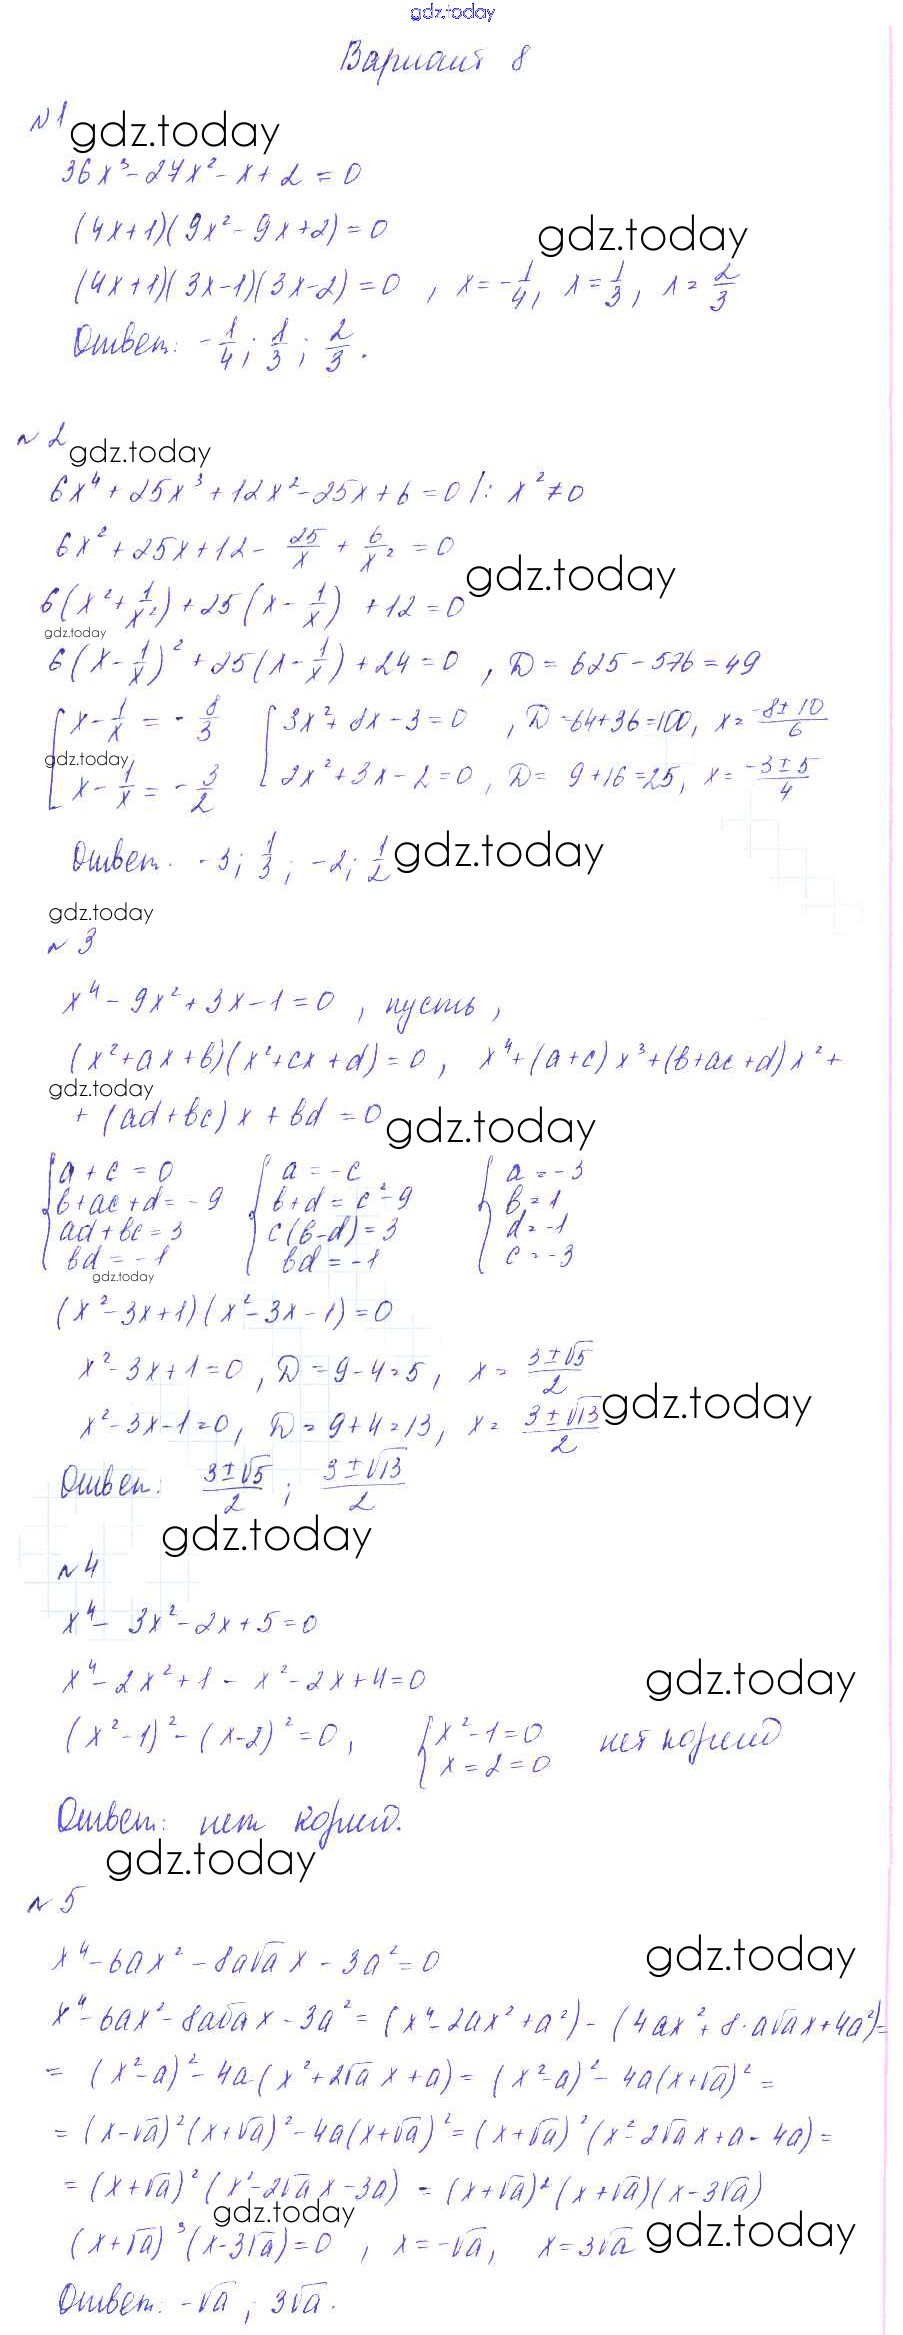 gdz.today
Вариант 8
№1 gdz.today
36x³ - 24x² - x + 2 = 0
(4x+1)(9x² - 9x + 2) = 0 gdz.today
(4x+1)(3x-1)(3x-2) = 0 , x = -1/4, x = 1/3, x = 2/3
Ответ: -1/4; 1/3; 2/3.
№2 gdz.today
6x⁴ + 25x³ + 12x² - 25x + 6 = 0 |: x² ≠ 0
6x² + 25x + 12 - 25/x + 6/x² = 0
gdz.today
6(x² + 1/x²) + 25(x - 1/x) + 12 = 0
gdz.today
6(x - 1/x)² + 25(x - 1/x) + 24 = 0 , D = 625 - 576 = 49
[x - 1/x = -8/3 [3x² + 8x - 3 = 0 , D = 64 + 36 = 100, x = (-8 ± 10)/6
gdz.today
x - 1/x = -3/2 2x² + 3x - 2 = 0 , D = 9 + 16 = 25, x = (-3 ± 5)/4
Ответ. -3; 1/3; -2; 1/2 gdz.today
gdz.today
№3
x⁴ - 9x² + 3x - 1 = 0 , пусть ,
(x² + ax + b)(x² + cx + d) = 0 , x⁴ + (a+c)x³ + (b+ac+d)x² +
gdz.today
+ (ad+bc)x + bd = 0 gdz.today
{a + c = 0 {a = -c {a = -3
b + ac + d = -9 b + d = c² - 9 b = 1
ad + bc = 3 c(b-d) = 3 d = -1
bd = -1 bd = -1 c = -3
gdz.today
(x² - 3x + 1)(x² - 3x - 1) = 0
x² - 3x + 1 = 0 , D = 9 - 4 = 5, x = (3 ± √5)/2
gdz.today
x² - 3x - 1 = 0, D = 9 + 4 = 13, x = (3 ± √13)/2
Ответ: (3 ± √5)/2 ; (3 ± √13)/2
gdz.today
№4
x⁴ - 3x² - 2x + 5 = 0
x⁴ - 2x² + 1 - x² - 2x + 4 = 0 gdz.today
(x² - 1)² - (x - 2)² = 0 , {x² - 1 = 0 нет корней
x = 2 = 0
Ответ: нет корней.
gdz.today
№5
x⁴ - 6ax² - 8a√a x - 3a² = 0 gdz.today
x⁴ - 6ax² - 8a√a x - 3a² = (x⁴ - 2ax² + a²) - (4ax² + 8·a√a x + 4a²) =
= (x² - a)² - 4a(x² + 2√a x + a) = (x² - a)² - 4a(x + √a)² =
= (x - √a)²(x + √a)² - 4a(x + √a)² = (x + √a)²(x² - 2√a x + a - 4a) =
= (x + √a)²(x² - 2√a x - 3a) = (x + √a)²(x + √a)(x - 3√a)
gdz.today
(x + √a)³(x - 3√a) = 0 , x = -√a, x = 3√a gdz.today
Ответ: -√a ; 3√a.